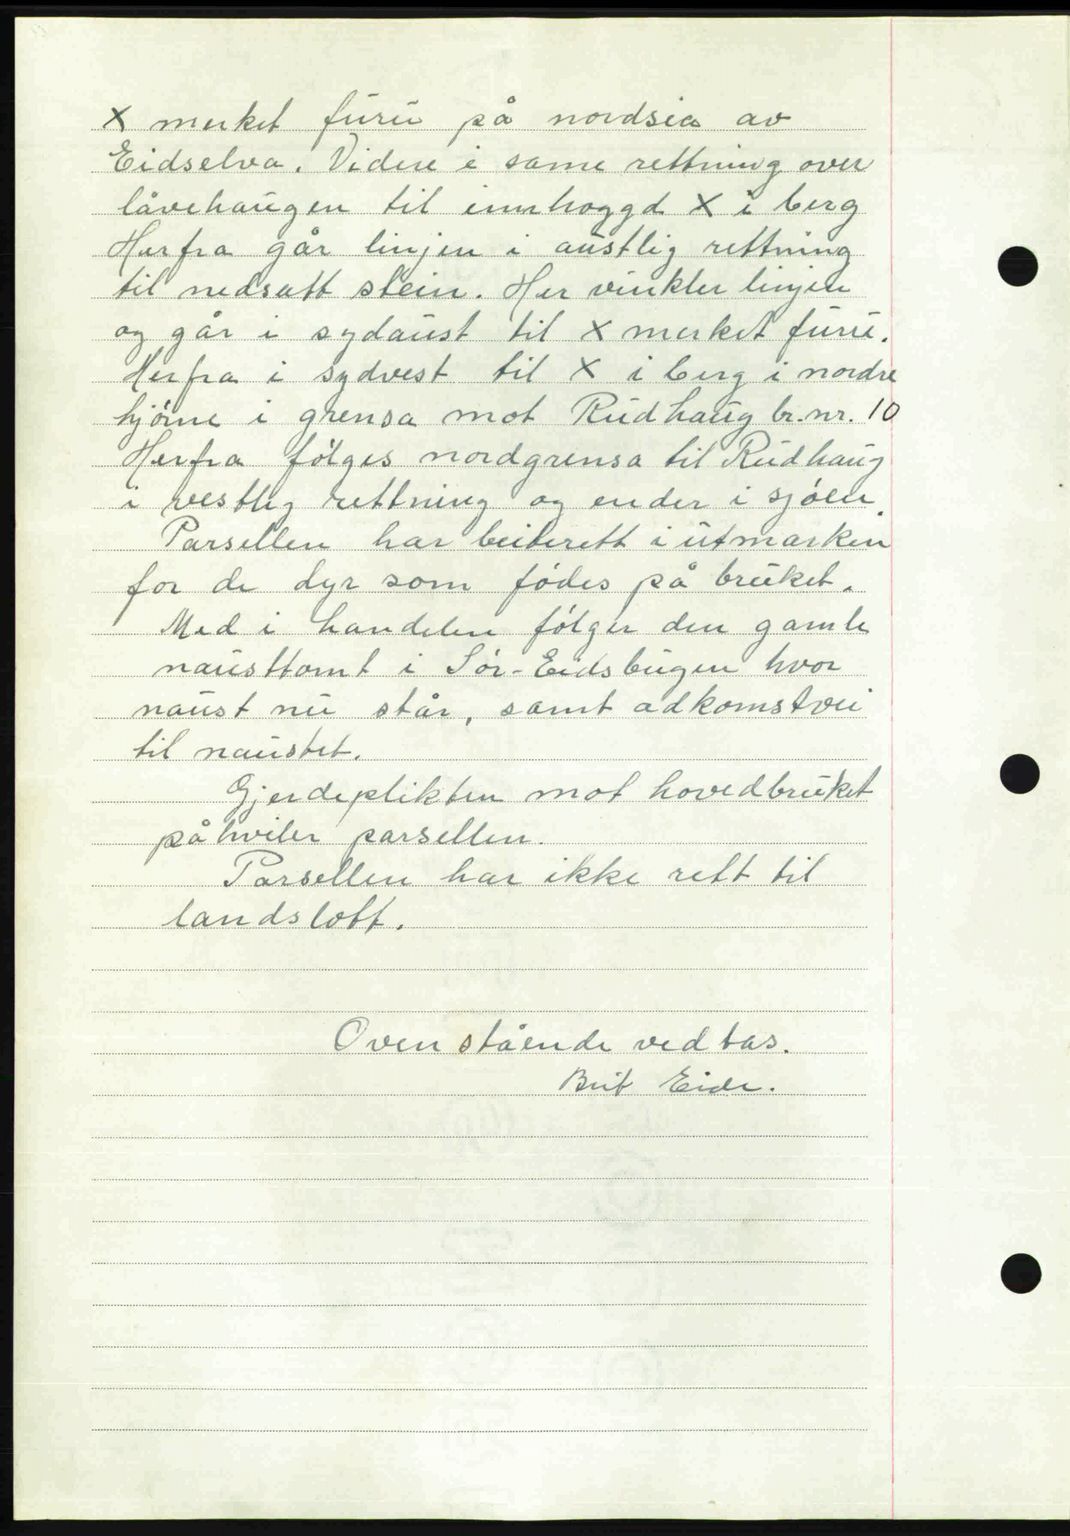 X merket furu på nordsia av
Eidselva. Videre i same rettning over
låvehaugen til innhoggd X i berg
Herfra går linjen i austlig rettning
til nedsatt stein. Her vinkler linjen
og går i sydaust til X merket furu.
Herfra i sydvest til X i berg i nordre
hjørne i grensa mot Rudhaug br.nr. 10
Herfra følges nordgrensa til Rudhaug
i vestlig rettning og ender i sjøen.
Parsellen har beiterett i utmarken
for de dyr som fødes på bruket.
Med i handelen følger den gamle
nausttomt i Sør-Eidsbugen hvor
naust nu står, samt adkomstvei
til naustet.
Gjerdeplikten mot hovedbruket
påhviler parsellen.
Parsellen har ikke rett til
landslott.
Ovenstående vedtas.
Brit Eide.